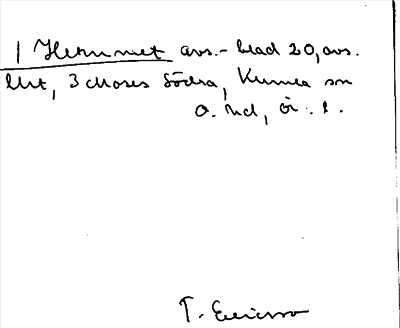 1 Hemmet avs.- blad 20, avs.
litt, 3 Moses Södra, Kumla sn
o. hd, Ör. l.
T. Ericsson